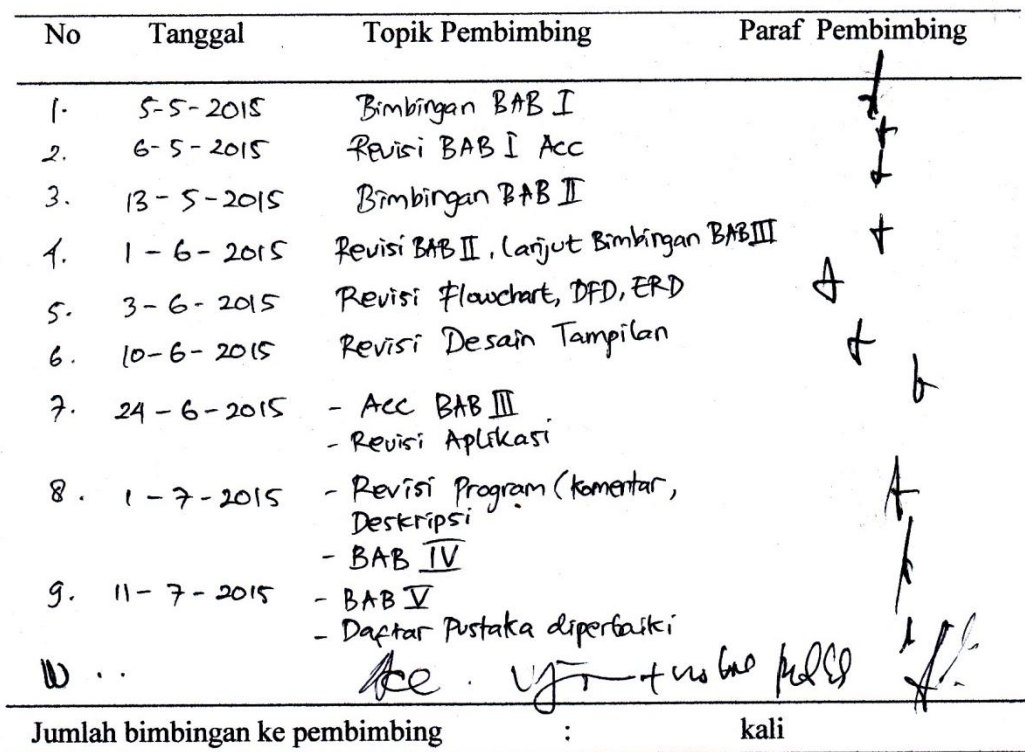 No Tanggal Topik Pembimbing Paraf Pembimbing
1. 5-5-2015 Bimbingan BAB I
2. 6-5-2015 Revisi BAB I Acc
3. 13-5-2015 Bimbingan BAB II
4. 1-6-2015 Revisi BAB II, Lanjut Bimbingan BAB III
5. 3-6-2015 Revisi Flowchart, DFD, ERD
6. 10-6-2015 Revisi Desain Tampilan
7. 24-6-2015 - Acc BAB III
- Revisi Aplikasi
8. 1-7-2015 - Revisi Program (komentar,
Deskripsi
- BAB IV
9. 11-7-2015 - BAB V
- Daftar Pustaka diperbaiki
10 .. Acc.
Jumlah bimbingan ke pembimbing : kali